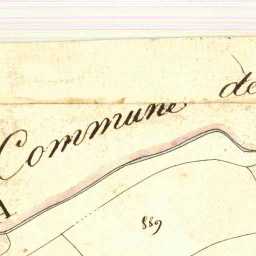 Commune de
A
559